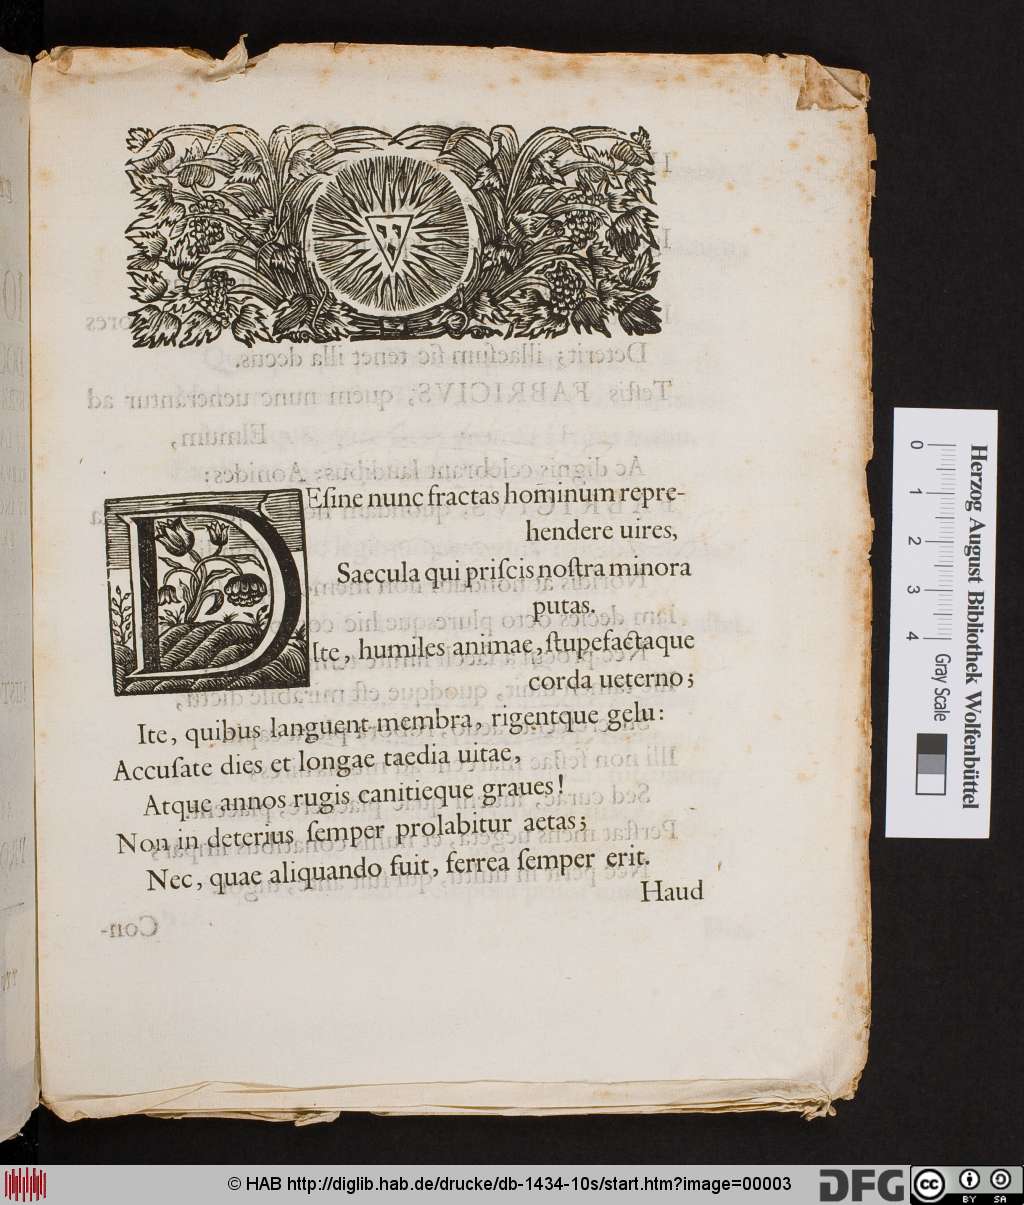 DEſine nunc fractas hominum repre-
hendere uires,
Saecula qui priſcis noſtra minora
putas.
Ite, humiles animae, ſtupefactaque
corda ueterno;
Ite, quibus languent membra, rigentque gelu:
Accuſate dies et longae taedia uitae,
Atque annos rugis canitieque graues!
Non in deterius ſemper prolabitur aetas;
Nec, quae aliquando fuit, ferrea ſemper erit.
Haud
Herzog August Bibliothek Wolfenbüttel
0 1 2 3 4 Gray Scale
© HAB http://diglib.hab.de/drucke/db-1434-10s/start.htm?image=00003
DFG
cc BY SA